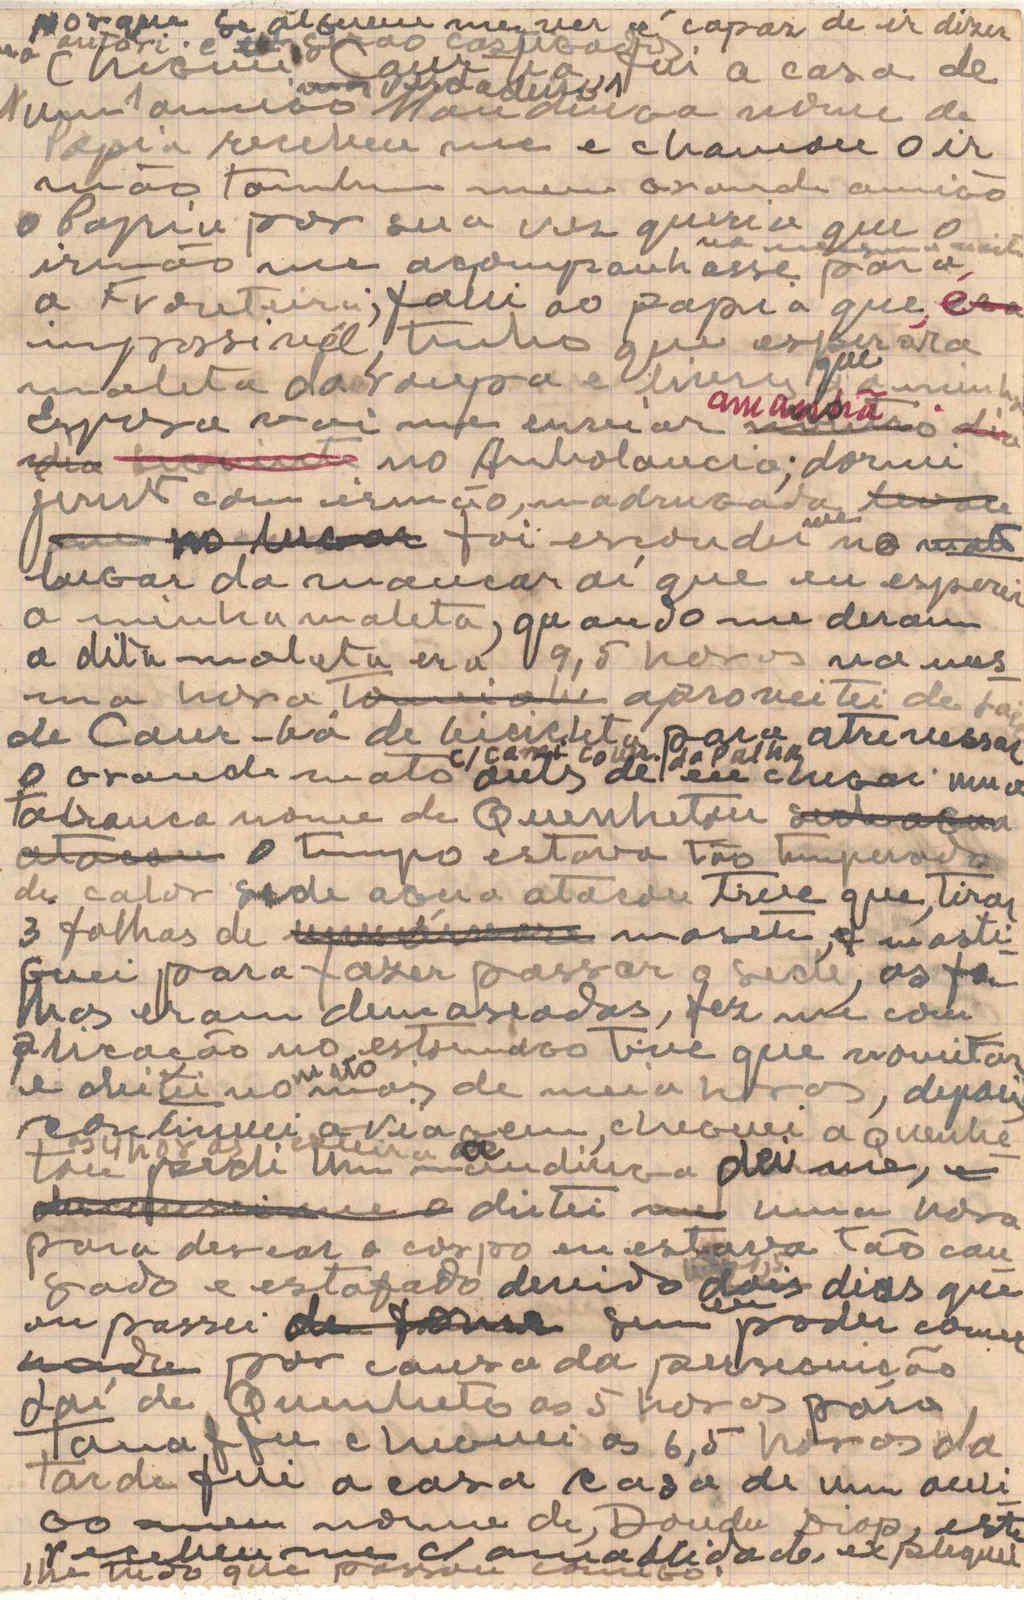 porque se alguem me ver é capaz de ir dizer
Cheguei Caur-ba fui a casa de
um amigo Mandinga nome de
Papia recebeu me e chamou o ir
mão tambem meu grande amigo
o Papia por sua vez queria que o
irmão me acompanhasse para
a Fronteira; falei ao papia que era
impossivel, tenho que esperar a
maleta da roupa e livru que a minha
Esposa vai me enviar amanhã
no Anbolancia; dormi
junt com irmão, madrugada levou
no lugar foi esconder me no mato
lugar da mancar aí que eu esperei
a minha maleta, quando me deram
a dita maleta era 9,5 horas na mes
ma hora aproveitei de sair
de Caur-bá de bicicleta para atrevessar
o grande mato antes de eu chegar numa
tabanca nome de Quenhetou sede agua
atacou o tempo estava tão temperado
de calor sede agua atacou tive que, tirar
3 folhas de masete, e masti
guei para fazer passar a sede, as fo
lhas eram demaseadas, fez me com
plicação no estomago tive que vomitar
e deitei no mato mais de meia horas, depois
continuei a viagem, cheguei a Quenhe
tou pedi um mandinga deu me, e
deitei me uma hora
para descar o corpo eu estava tão can
sado e estafado devido dois dias que
eu passei de fome sem eu poder comer
nada por causa da perseguição
daí de Quenheto as 5 horas para
Tanaffe cheguei as 6,5 horas da
tarde fui a casa casa de um ami
go meu nome de, Doudu Diop, este
recebeu me c/ amabilidade, expliquei
lhe tudo que passou comigo.